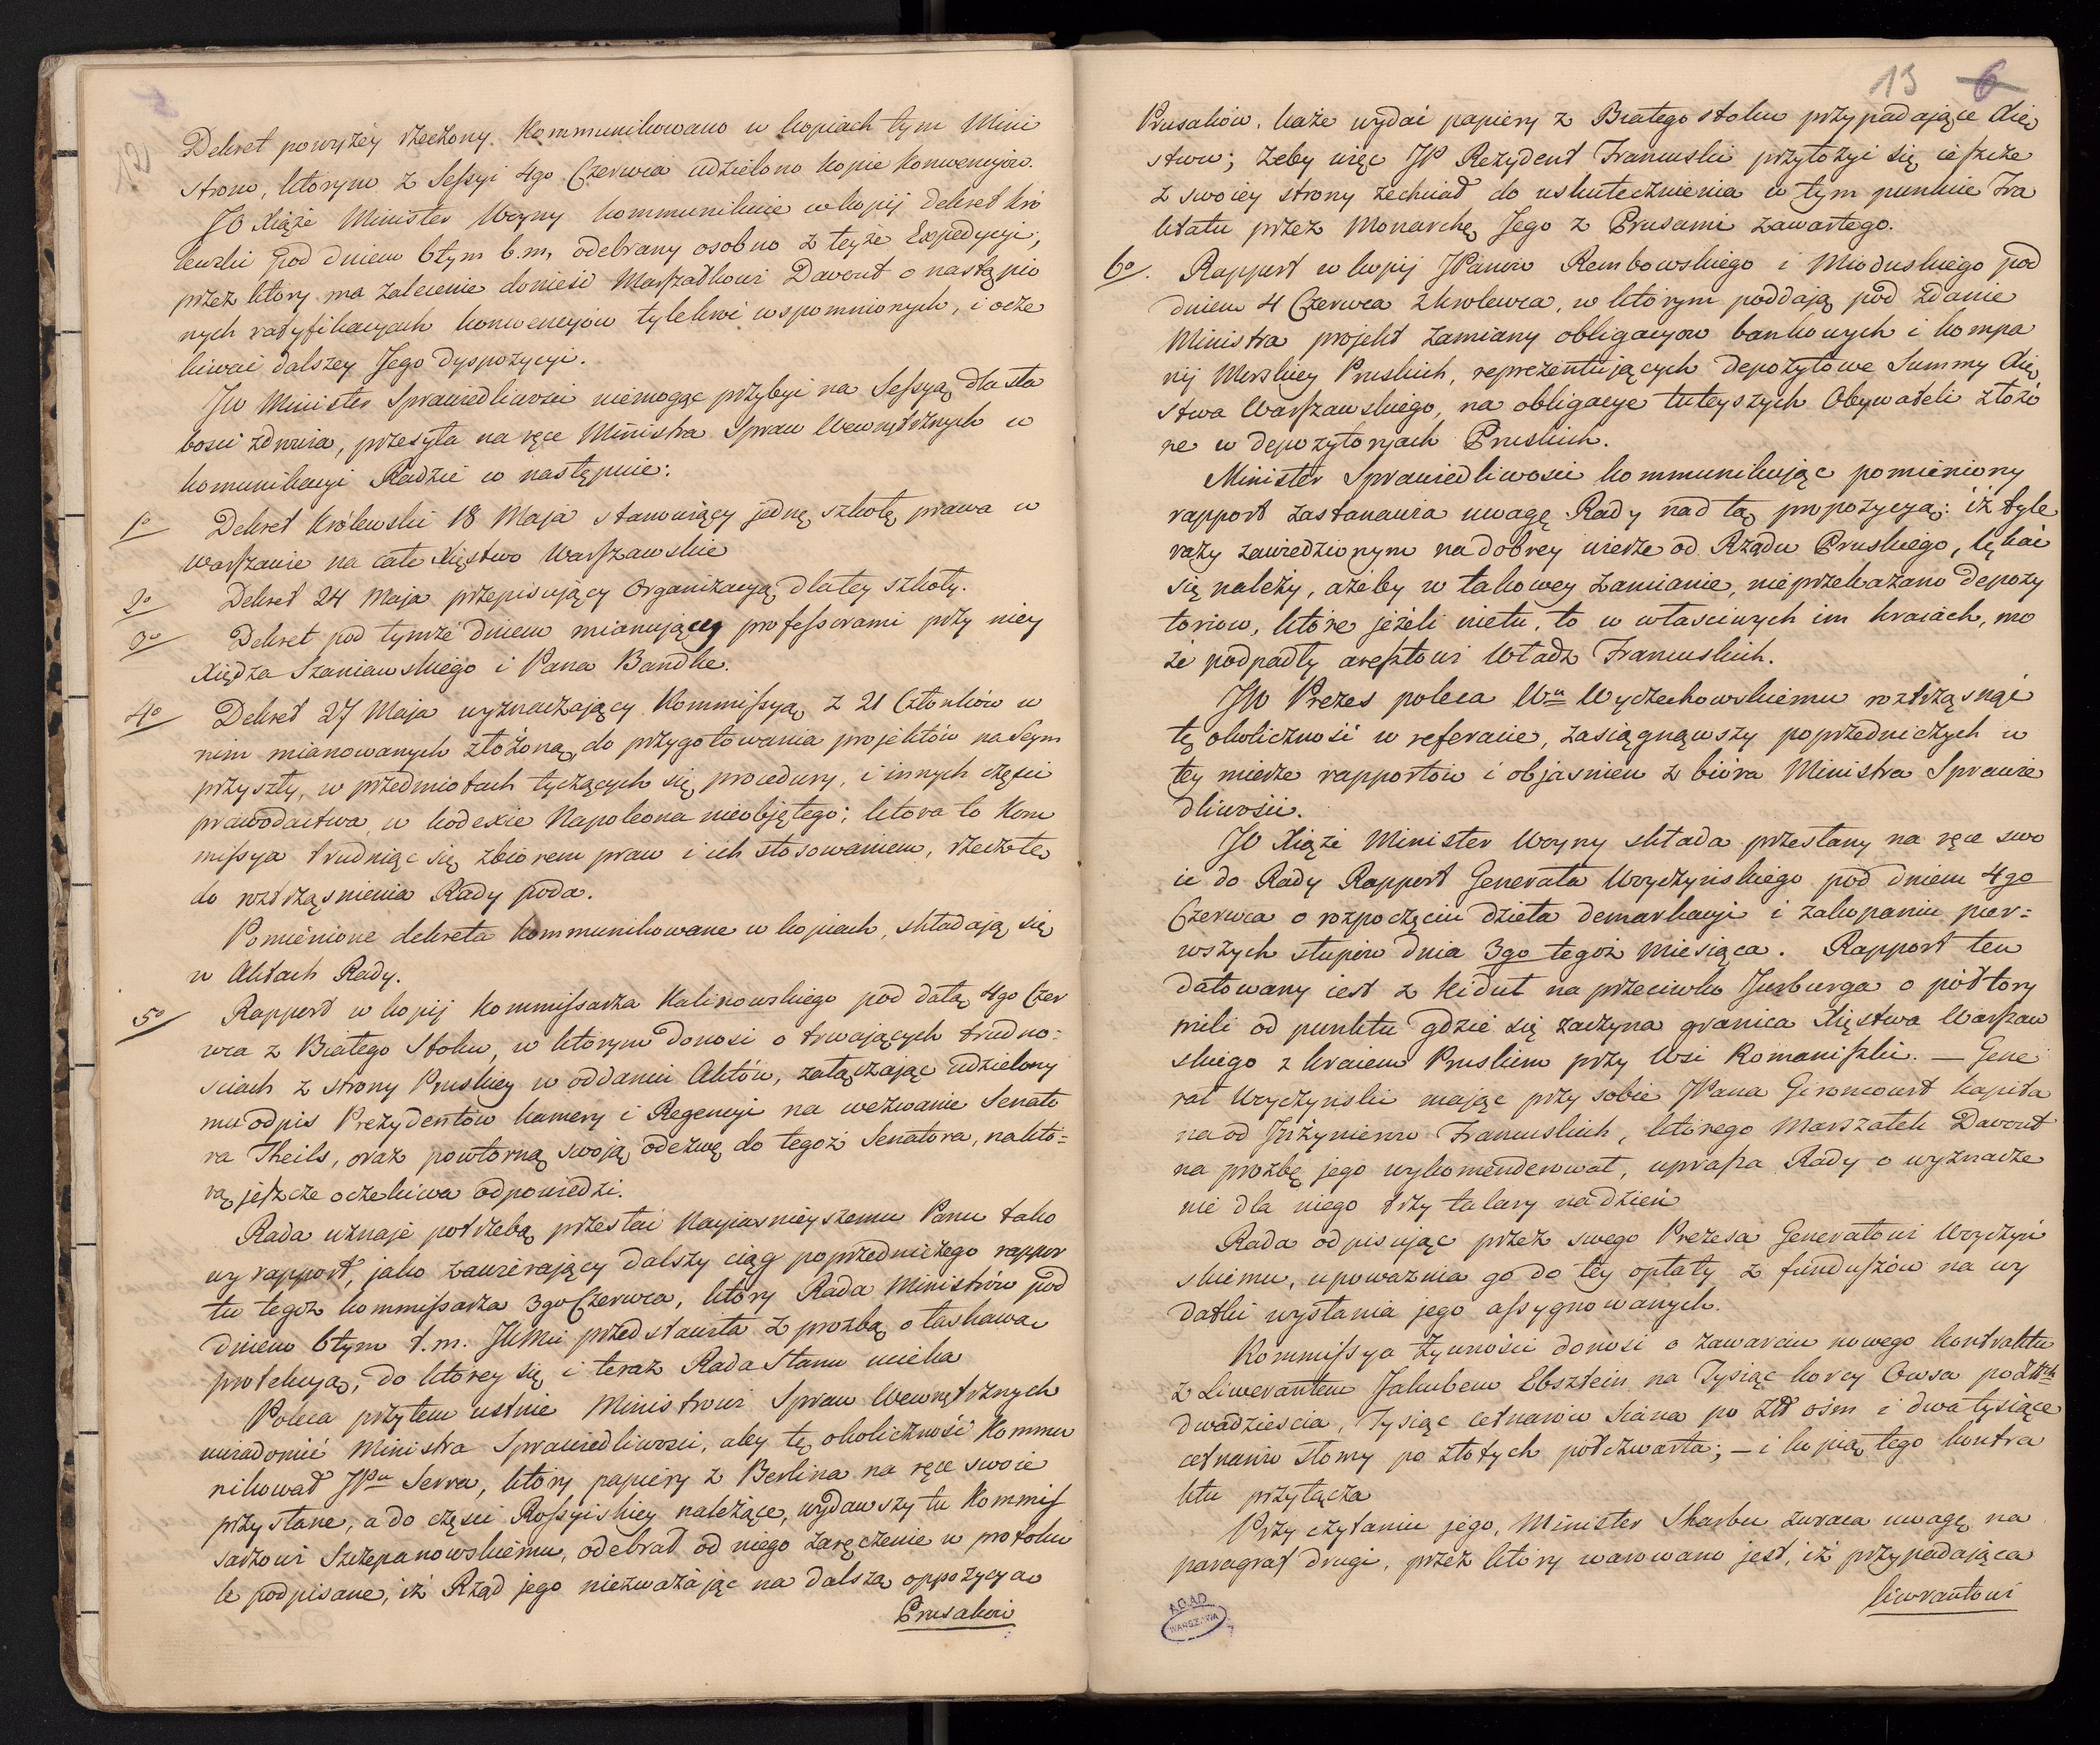 Dekret powyżéy rzeczony. Kommunikowano w kopiach tym Mini
strom, którym z Sessyi 4go Czerwca udzielono kopie Konwencyów.
JO Xiąże Minister Woyny kommunikuie w kopij dekret kró
lewski pod dniem 6tym b.m. odebrany osobno z teyże Expedycyi,
przez który ma zalecenie donieść Marszałkowi Davout o nastąpio
nych ratyfikacyach konwencyów tylekroć wspomnionych, i ocze
kiwać dalszey Jego dyspozycyi.
JW Minister Sprawiedliwości niemogąc przybyć na Sessyą dla sła
bości zdrowia, przesyła na ręce Ministra Spraw Wewnętrznych w
komunikacyi Radzie co następuie:
1o Dekret Królewski 18 Maja stanowiący jednę szkołę prawa w
Warszawie na całe Xięstwo Warszawskie
2o Dekret 24 Maja przepisujący Organizacyą dla tey szkoły.
3o Dekret pod tymże dniem mianujący professorami przy niey
Xiędza Szaniawskiego i Pana Bandke.
4o Dekret 27 Maja wyznaczający Kommissyą z 21 Członków w
nim mianowanych złożoną, do przygotowania projektów na Seym
przyszły, w przedmiotach tyczących się procedury, i innych części
prawodawstwa w kodexie Napoleona nieobjętego; która to Kom
missya trudniąc się zbiorem praw i ich stosowaniem, rzecz tę
do roztrząśnienia Rady poda.
Pomienione dekreta kommunikowane w kopiach, składają się
w Aktach Rady.
5o Rapport w kopij Kommissarza Kalinowskiego pod datą 4go Czer
wca z Białego Stoku, w którym donosi o trwających trudno=
ściach z strony Pruskiey w oddaniu Aktów, załączając udzielony
mu odpis Prezydentów kamery i Regencyi na wezwanie Senato
ra Theils, oraz powtorną swoją odezwę do tegoż Senatora, na któ=
rą jeszcze oczekiwa odpowiedzi.
Rada uznaje potrzebą przesłać Nayiaśnieyszemu Panu tako
wy rapport, jako zawierający dalszy ciąg poprzedniczego rappor
tu tegoż kommissarza 3go Czerwca, który Rada Ministrów pod
dniem 6tym t.m. JKMci przedstawiła z prozbą o łaskawą
protekcyą, do którey się i teraz Rada Stanu ucieka
Poleca przytem ustnie Ministrowi Spraw Wewnętrznych
uwiadomić Ministra Sprawiedliwości, aby tę okoliczność kommu
nikował JPu Serra, który papiery z Berlina na ręce swoie
przysłane, a do części Rossyiskiey należące, wydawszy tu Kommis
sarzowi Szczepanowskiemu, odebrał od niego zaręczenie w protoku
le podpisane, iż Rząd jego niezważając na dalszą oppozycyą
Prusaków
13 6
Prusaków, każe wydać papiery z Białegostoku przypadające Xię
stwu; żeby więc JP Rezydent Francuski przyłożyć się ieszcze
z swoiey strony zechciał do uskutecznienia w tym punkcie Tra
ktatu przez Monarchę Jego z Prusami zawartego.
6o. Rapport w kopij JPanów Rembowskiego i Mioduskiego pod
dniem 4 Czerwca z Krolewca, w którym poddają pod zdanie
Ministra projekt zamiany obligacyow bankowych i kompa
nij Morskiey Pruskich, reprezentujących depozytowe Summy Xię
stwa Warszawskiego, na obligacye tuteyszych Obywateli złożo
ne w depozytoryach Pruskich.
Minister Sprawiedliwości kommunikując pomieniony
rapport zastanawia uwagę Rady nad tą propozycyą: iż tyle
razy zawiedzionym na dobrey wierze od Rządu Pruskiego, lękać
się należy, ażeby w takowey zamianie, nieprzekazano depozy
toriow, które jeżeli nie tu, to w własciwych im kraiach, mo
że podpadły aresztowi Władz Francuskich.
JW Prezes poleca Wu Wyczechowskiemu roztrząsnąć
tę okoliczność w referacie, zasiągnąwszy poprzedniczych w
tey mierze rapportów i objaśnień z bióra Ministra Sprawie
dliwości.
JO Xiąże Minister Woyny składa przesłany na ręce swo
ie do Rady Rapport Generała Woyczyńskiego pod dniem 4go
Czerwca o rozpoczęciu dzieła demarkacyi i zakopaniu pier=
wszych słupów dnia 3go tegoż miesiąca. Rapport ten
datowany iest z Kidul na przeciwko Jurburga o półtory
mili od punktu gdzie się zaczyna granica Xięstwa Warszaw
skiego z kraiem Pruskim przy Wsi Romaniszki. — Gene
rał Woyczyński mając przy sobie JPana Gironcourt kapita
na od Jnżynierow Francuskich, którego Marszałek Davout
na prozbę jego wykomenderował, uprasza Rady o wyznacze
nie dla niego trzy talary na dzień
Rada odpisując przez swego Prezesa Generałowi Woyczyń
skiemu, upoważnia go do tey opłaty z funduszów na wy
datki wysłania jego assygnowanych.
Kommissya Żywności donosi o zawarciu nowego kontraktu
z Liwerantem Jakubem Ebsztein na Tysiąc korcy Owsa po Złtch
dwadzieścia, Tysiąc cetnarów Siana po Złł ośm i dwa tysiące
cetnarów słomy po złotych półczwarta; — i kopią tego kontra
ktu przyłącza
Przy czytaniu jego, Minister Skarbu zwraca uwagę na
paragraf drugi, przez który warowano jest, iż przypadająca
liwrantowi
A.G.A.D.
WARSZAWA